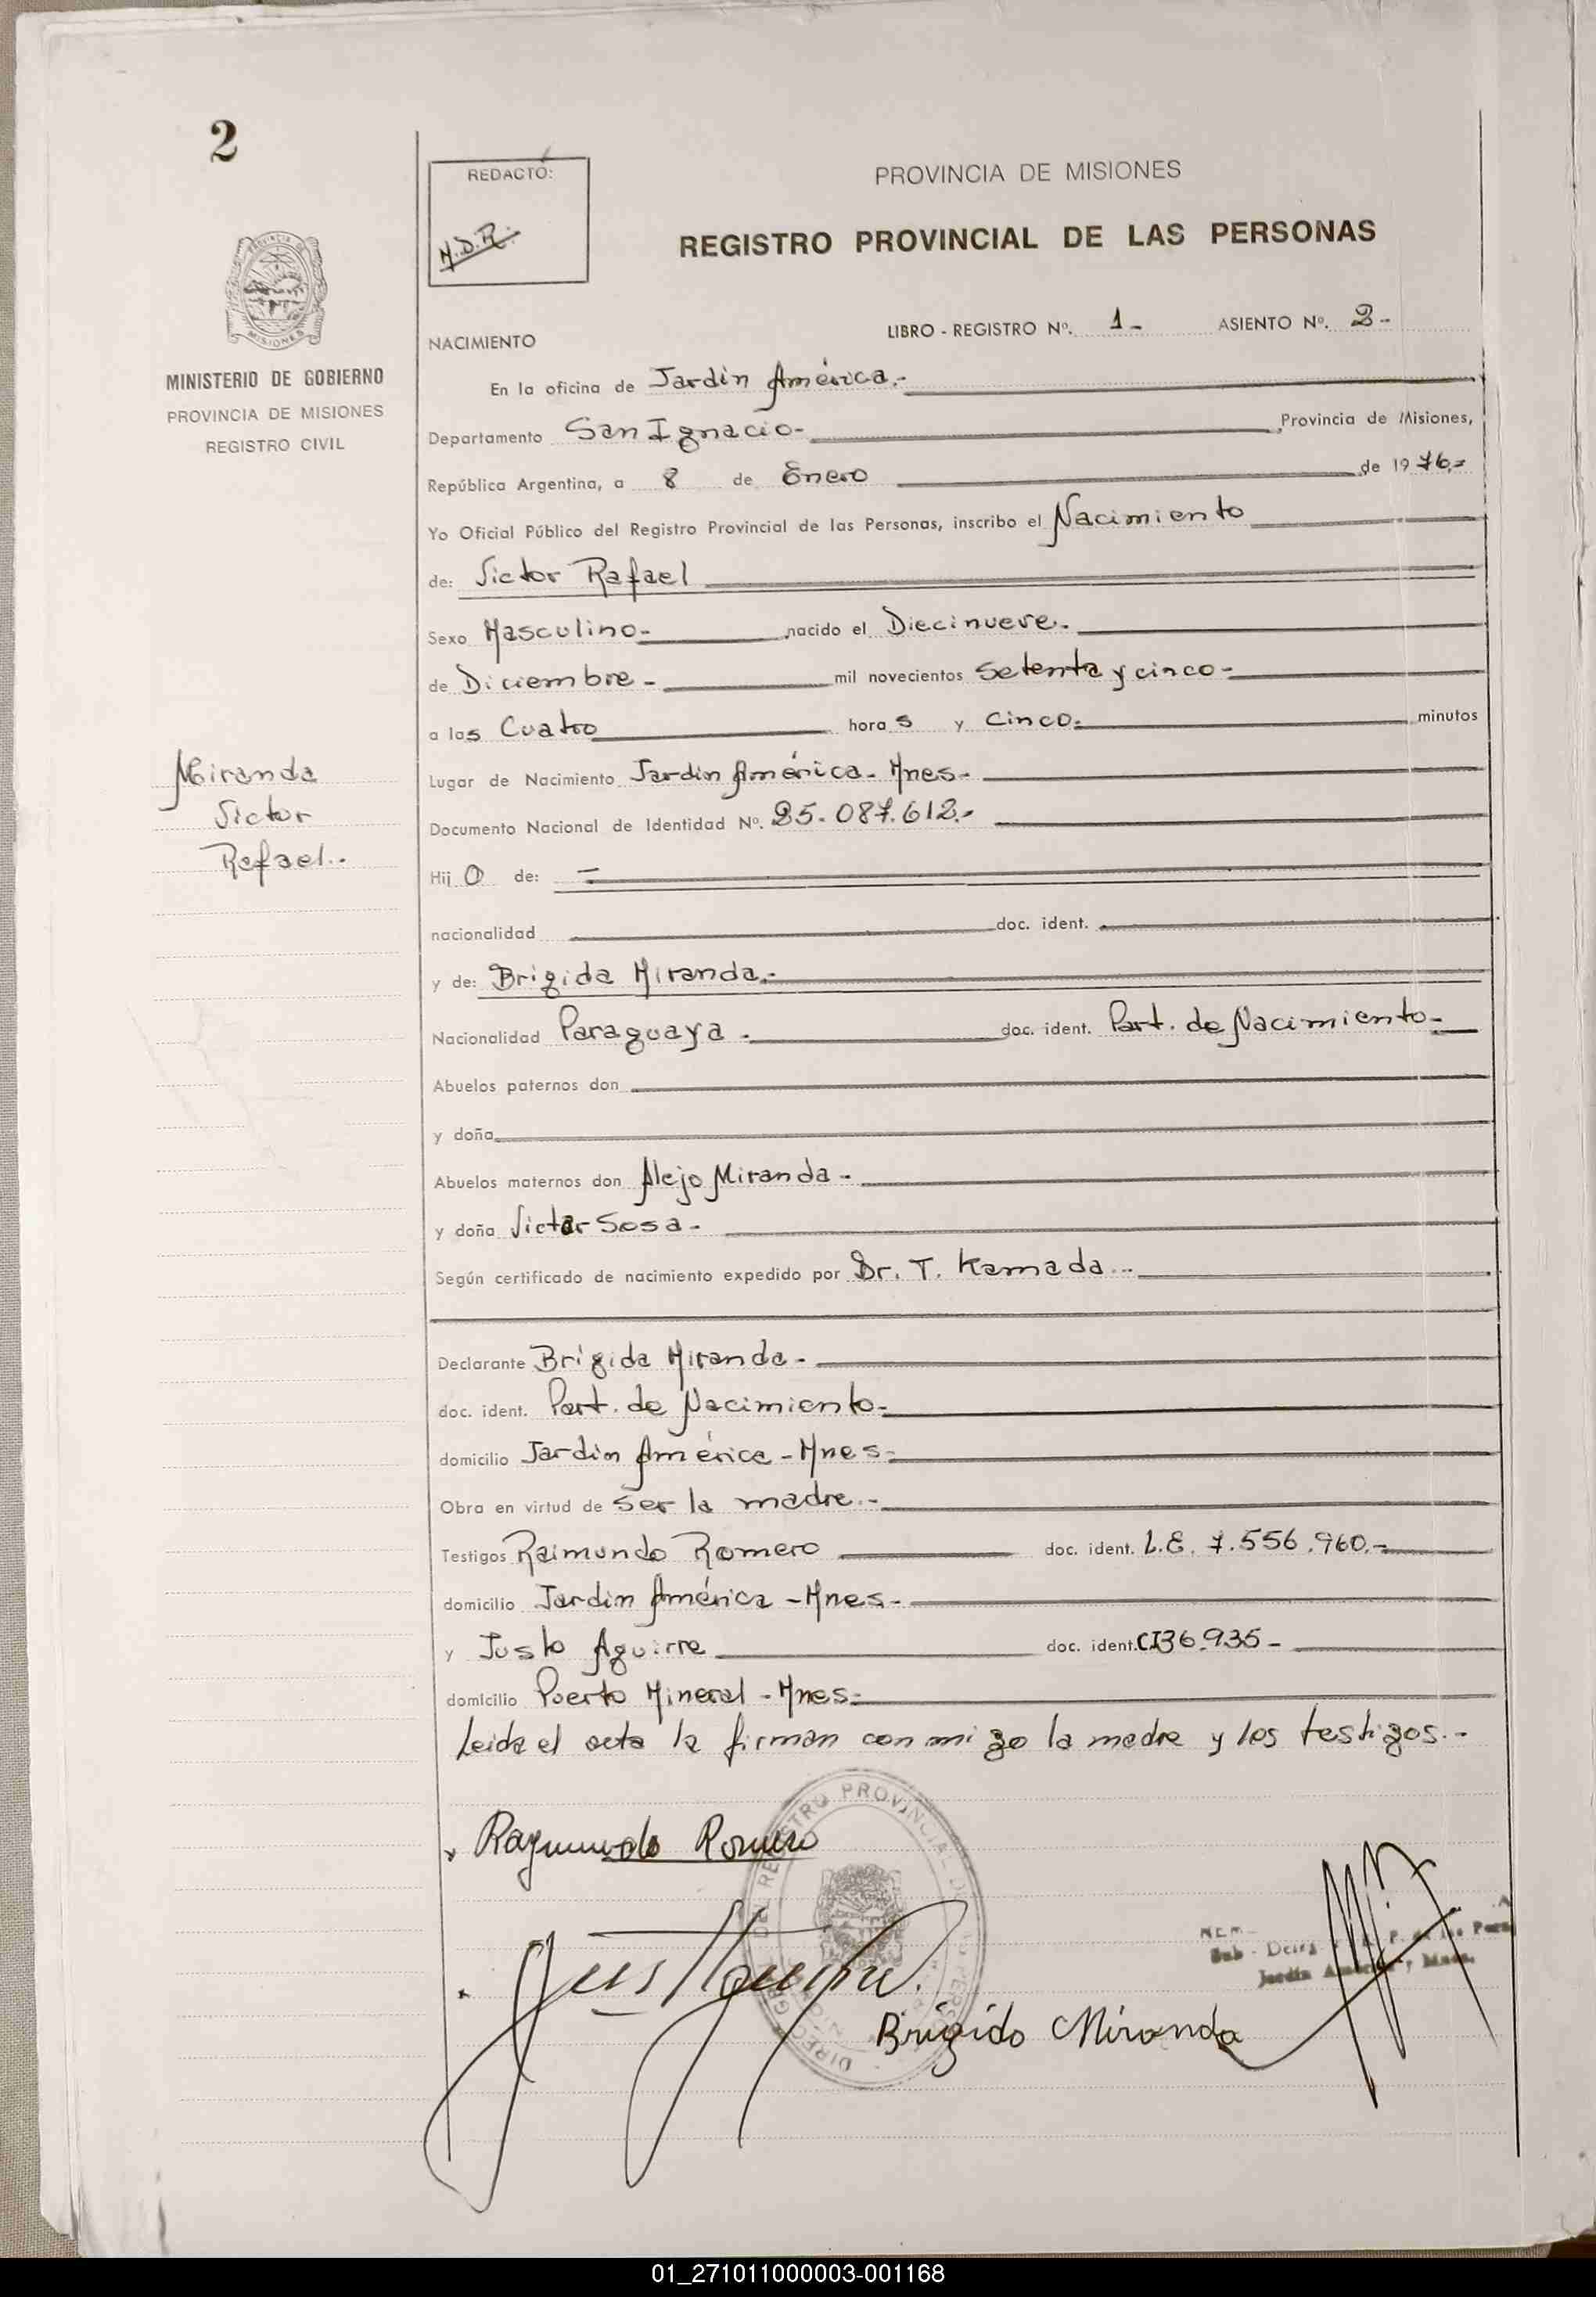 2
REDACTÓ:
M.D.R.
PROVINCIA DE MISIONES
REGISTRO PROVINCIAL DE LAS PERSONAS
PROVINCIA DE
MISIONES
MINISTERIO DE GOBIERNO
PROVINCIA DE MISIONES
REGISTRO CIVIL
LIBRO - REGISTRO Nº. 1- ASIENTO Nº. 2-
NACIMIENTO
En la oficina de Jardín América.-
Departamento San Ignacio- Provincia de Misiones,
República Argentina, a 8 de Enero de 1976.-
Yo Oficial Público del Registro Provincial de las Personas, inscribo el Nacimiento
de: Victor Rafael
Sexo Masculino- nacido el Diecinueve.-
de Diciembre- mil novecientos Setenta y cinco-
a las Cuatro horas y Cinco- minutos
Miranda
Victor
Rafael..
Lugar de Nacimiento Jardín América- Mnes-
Documento Nacional de Identidad Nº. 25.087.612.-
Hijo de: -
nacionalidad doc. ident.
y de: Brigida Miranda.-
Nacionalidad Paraguaya- doc. ident. Part. de Nacimiento-
Abuelos paternos don
y doña
Abuelos maternos don Alejo Miranda-
y doña Victar Sosa-
Según certificado de nacimiento expedido por Dr. T. Kamada..-
Declarante Brígida Miranda-
doc. ident. Part. de Nacimiento-
domicilio Jardín América-Mnes-
Obra en virtud de Ser la madre.-
Testigos Raimundo Romero doc. ident. L.E. 7.556.960.-
domicilio Jardín América-Mnes-
y Justo Aguirre doc. ident. CI36.935-
domicilio Puerto Mineral-Mnes-
Leida el acta la firman conmigo la madre y los testigos.-
Raymundo Romero
Brígido Miranda
01_271011000003-001168